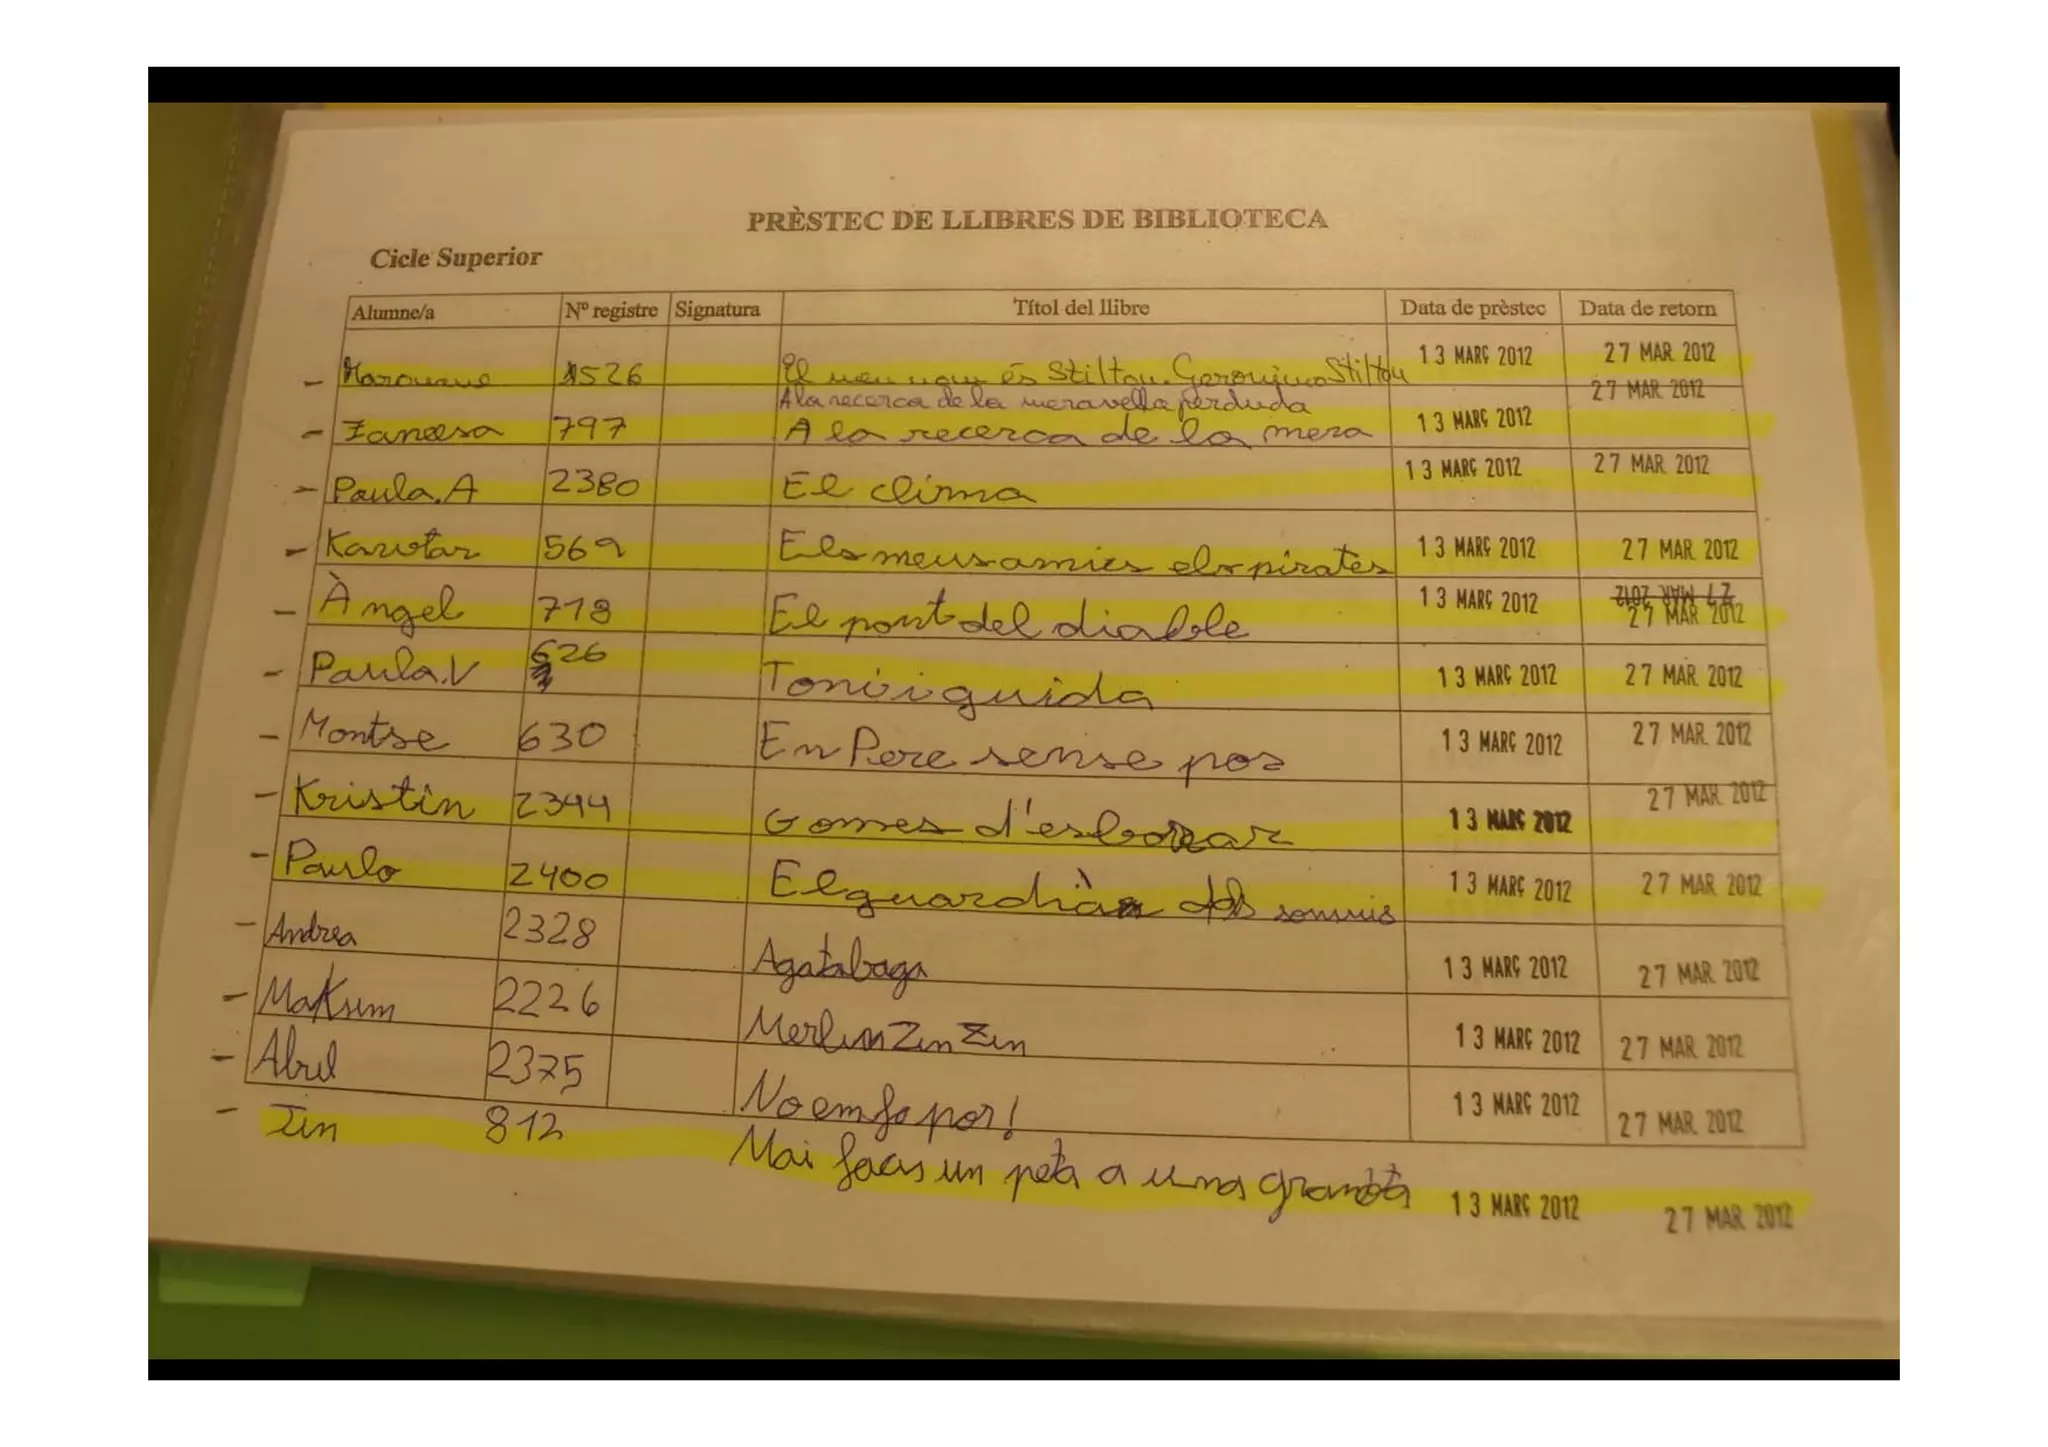 PRÈSTEC DE LLIBRES DE BIBLIOTECA
Cicle Superior
Alumne/a Nº registre Signatura Títol del llibre Data de prèstec Data de retorn
- Marouane 1526 El meu nom és Stilton. Geronimo Stilton 13 MARÇ 2012 27 MAR 2012
A la recerca de la meravella perduda 27 MAR 2012
- 797 A la recerca de la mera 13 MARÇ 2012
- Paula.A 2380 El clima 13 MARÇ 2012 27 MAR 2012
- 569 Els meus amics els pirates 13 MARÇ 2012 27 MAR 2012
27 MAR 2012
- Àngel 718 El pont del diable 13 MARÇ 2012 27 MAR 2012
- Paula.V 626 Toni i guida 13 MARÇ 2012 27 MAR 2012
- Montse 630 En Pere sense por 13 MARÇ 2012 27 MAR 2012
- Kristin 2344 Gomes d'esborrar 13 MARÇ 2012 27 MAR 2012
- Paulo 2400 El guardià dels somnis 13 MARÇ 2012 27 MAR 2012
- Andrea 2328 Agatabaga 13 MARÇ 2012 27 MAR 2012
- Maksim 2226 Merlin Zin Zin 13 MARÇ 2012 27 MAR 2012
- Abril 2375 No em fa por! 13 MARÇ 2012 27 MAR 2012
- 812 Mai facis un petó a una granota 13 MARÇ 2012 27 MAR 2012